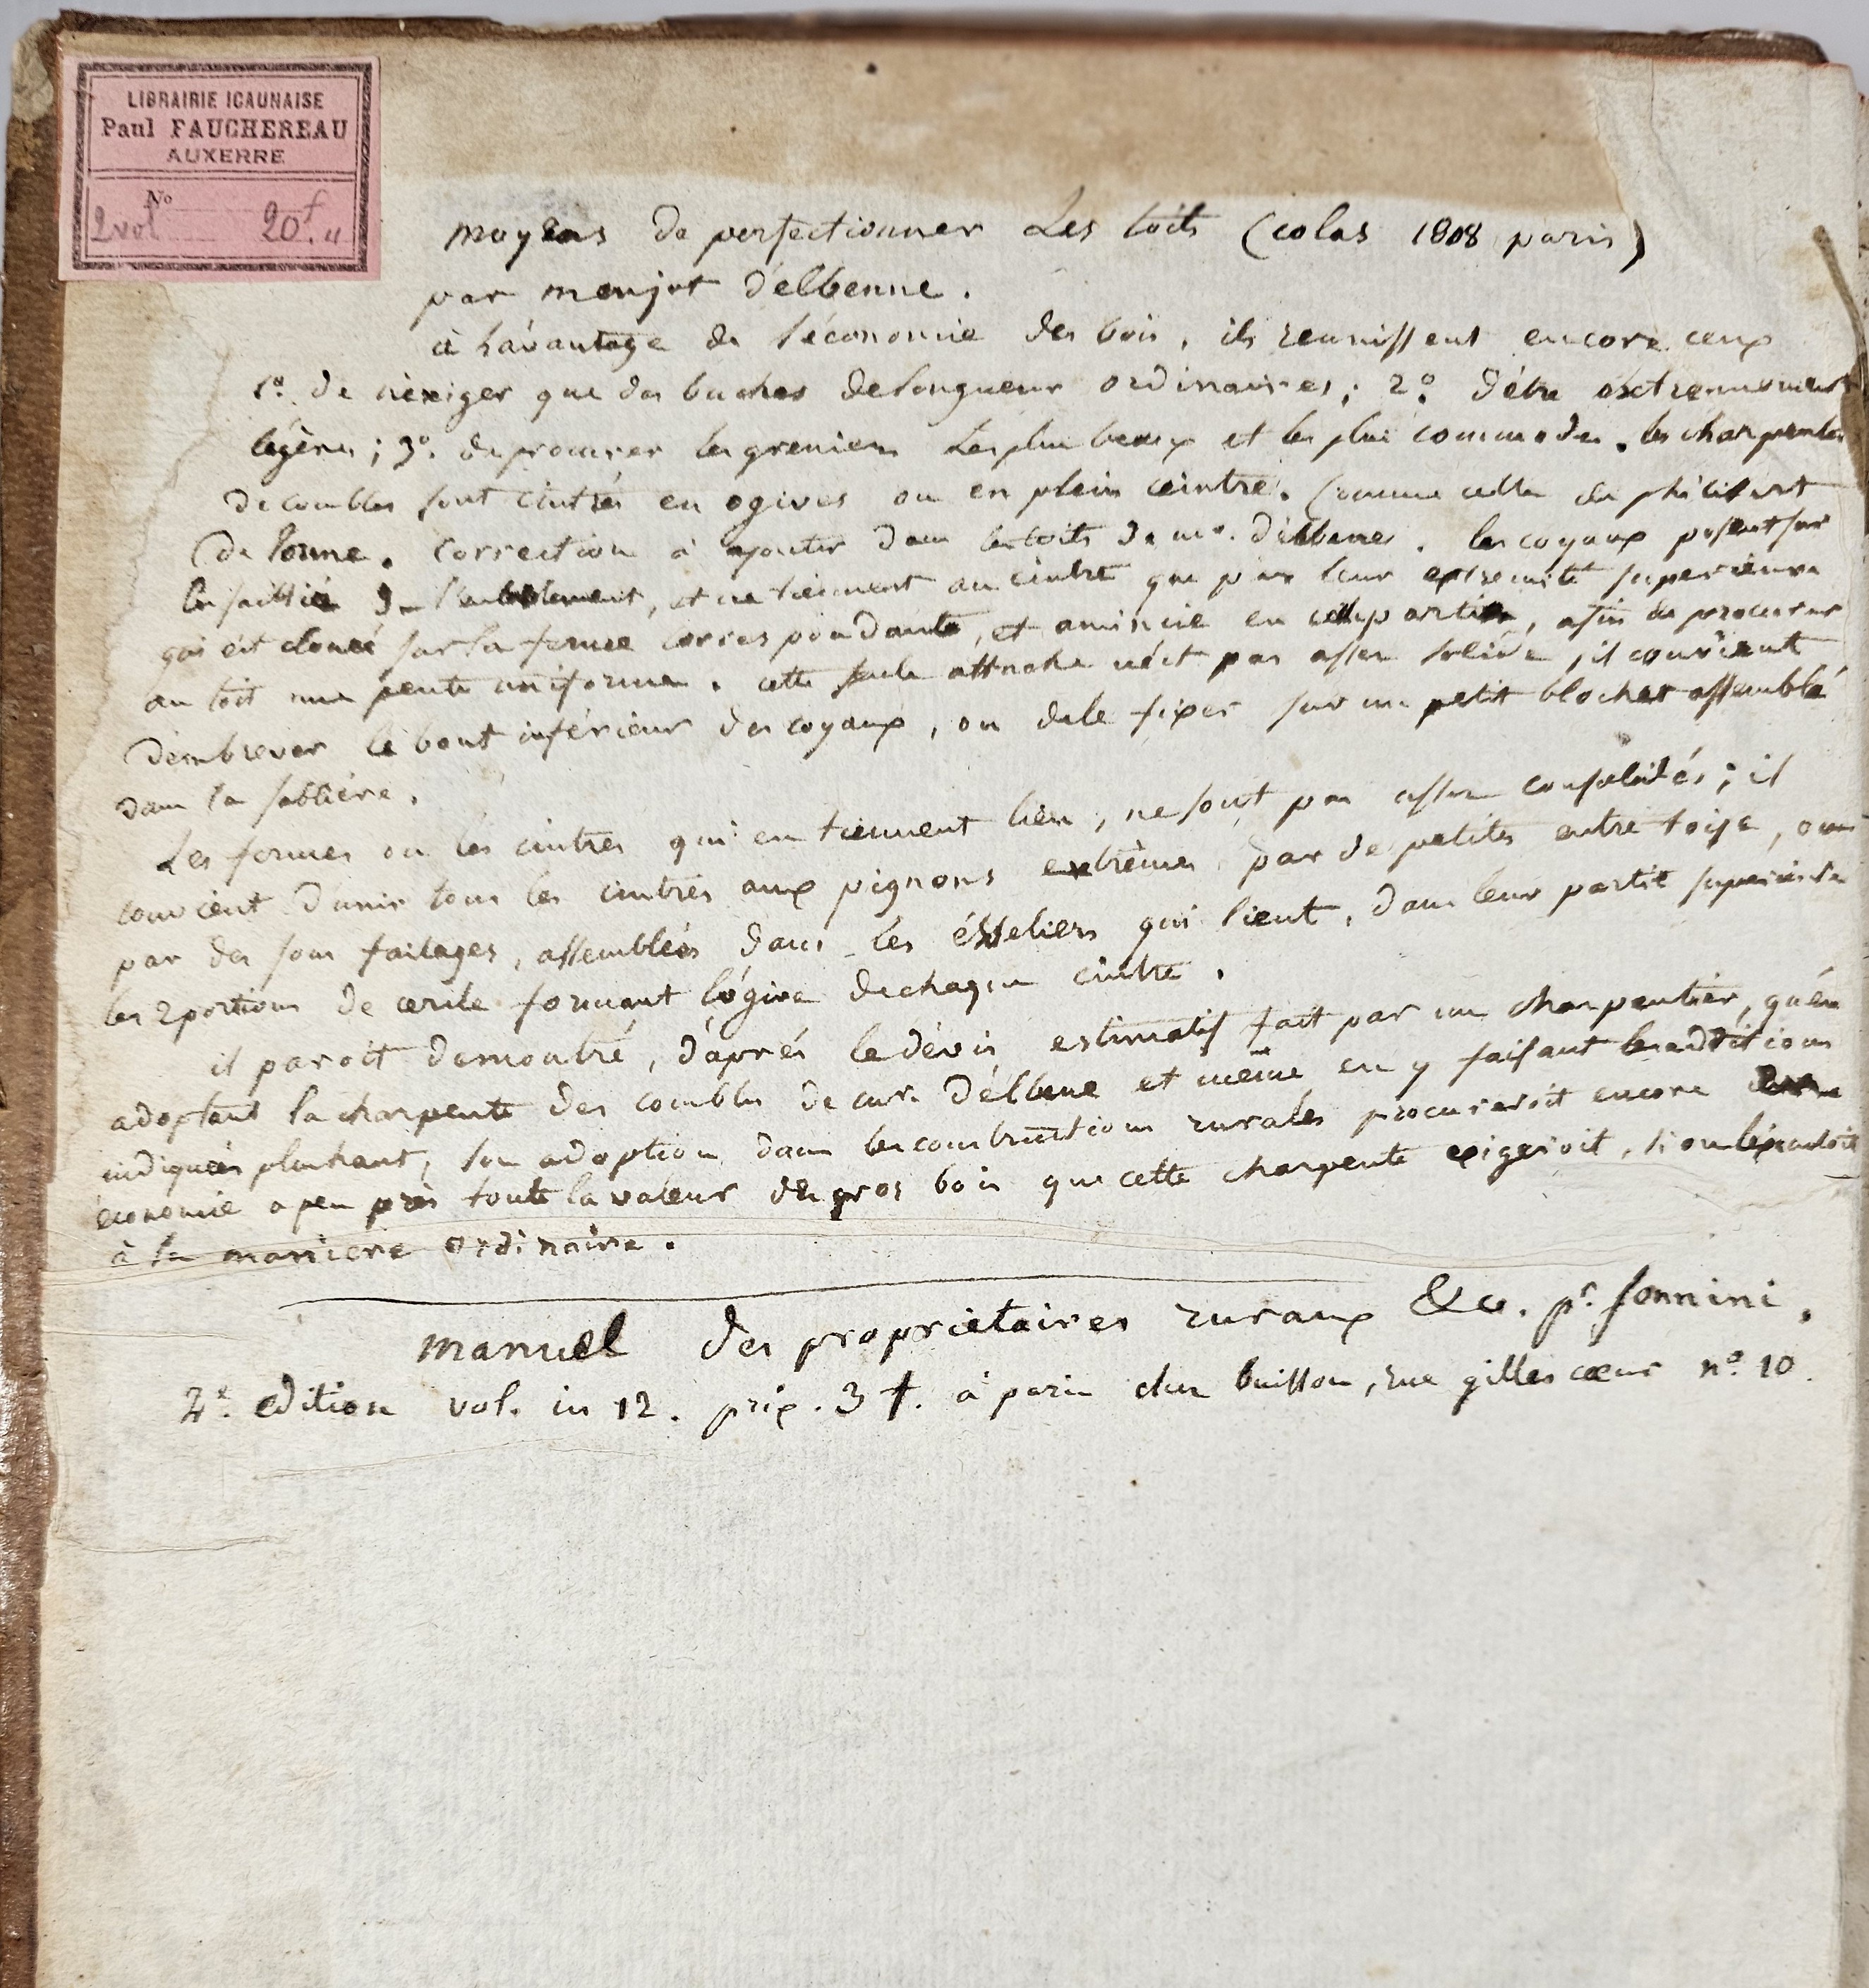 LIBRAIRIE ICAUNAISE
Paul FAUCHEREAU
AUXERRE
No
2 vol 20.f "
moyens de perfectionner Les toits (colas 1808 paris)
par menjot d'elbenne.
à l'avantage de l'économie des bois, ils reunissent encore ceux
1º. de n'exiger que des buches de longueur ordinaires; 2º. d'être extremement
légers; 3º. de procurer les greniers Les plus beaux et les plus commodes. les charpentes
de combles sont cintrés en ogives ou en plein ceintre. Comme celle de philibert
de lorme. Correction à ajouter dans les toits de mr. d'elbenne. les coyaux posent sur
la saillie de l'entablement, et ne tiennent au cintre que par leur extremité superieure
qui est clouée sur la ferme correspondante, et amincie en cette partie, afin de procurer
au toit une pente uniforme. cette seule attache n'est pas assez solide, il convient
d'embrever le bout inférieur des coyaux, ou de le fixer sur un petit blochet assemblé
dans la sablière.
Les fermes ou les cintres qui en tiennent lieu, ne sont pas assez consolidés; il
convient d'unir tous les cintres aux pignons extrêmes par de petites entre toise, ou
par des sous faitages, assemblés dans les esseliers qui lient, dans leur partie superieure
les 2 portions de cercle formant l'ogive de chaque cintre.
il paroit demontré, d'aprés le dévis estimatif fait par un charpentier, qu'en
adoptant la charpente des combles de mr. d'élbene et même en y faisant les additions
indiquées plus haut, son adoption dans les constructions rurales procureroit encore
économie a peu près toute la valeur des gros bois que cette charpente exigeroit, si on l'éxécutoit
à la maniere ordinaire.
manuel des propriétaires ruraux &c. pr. sonnini.
2e. edition vol. in 12. prix. 3 f. à paris chez buisson, rue gilles cœur nº. 10.